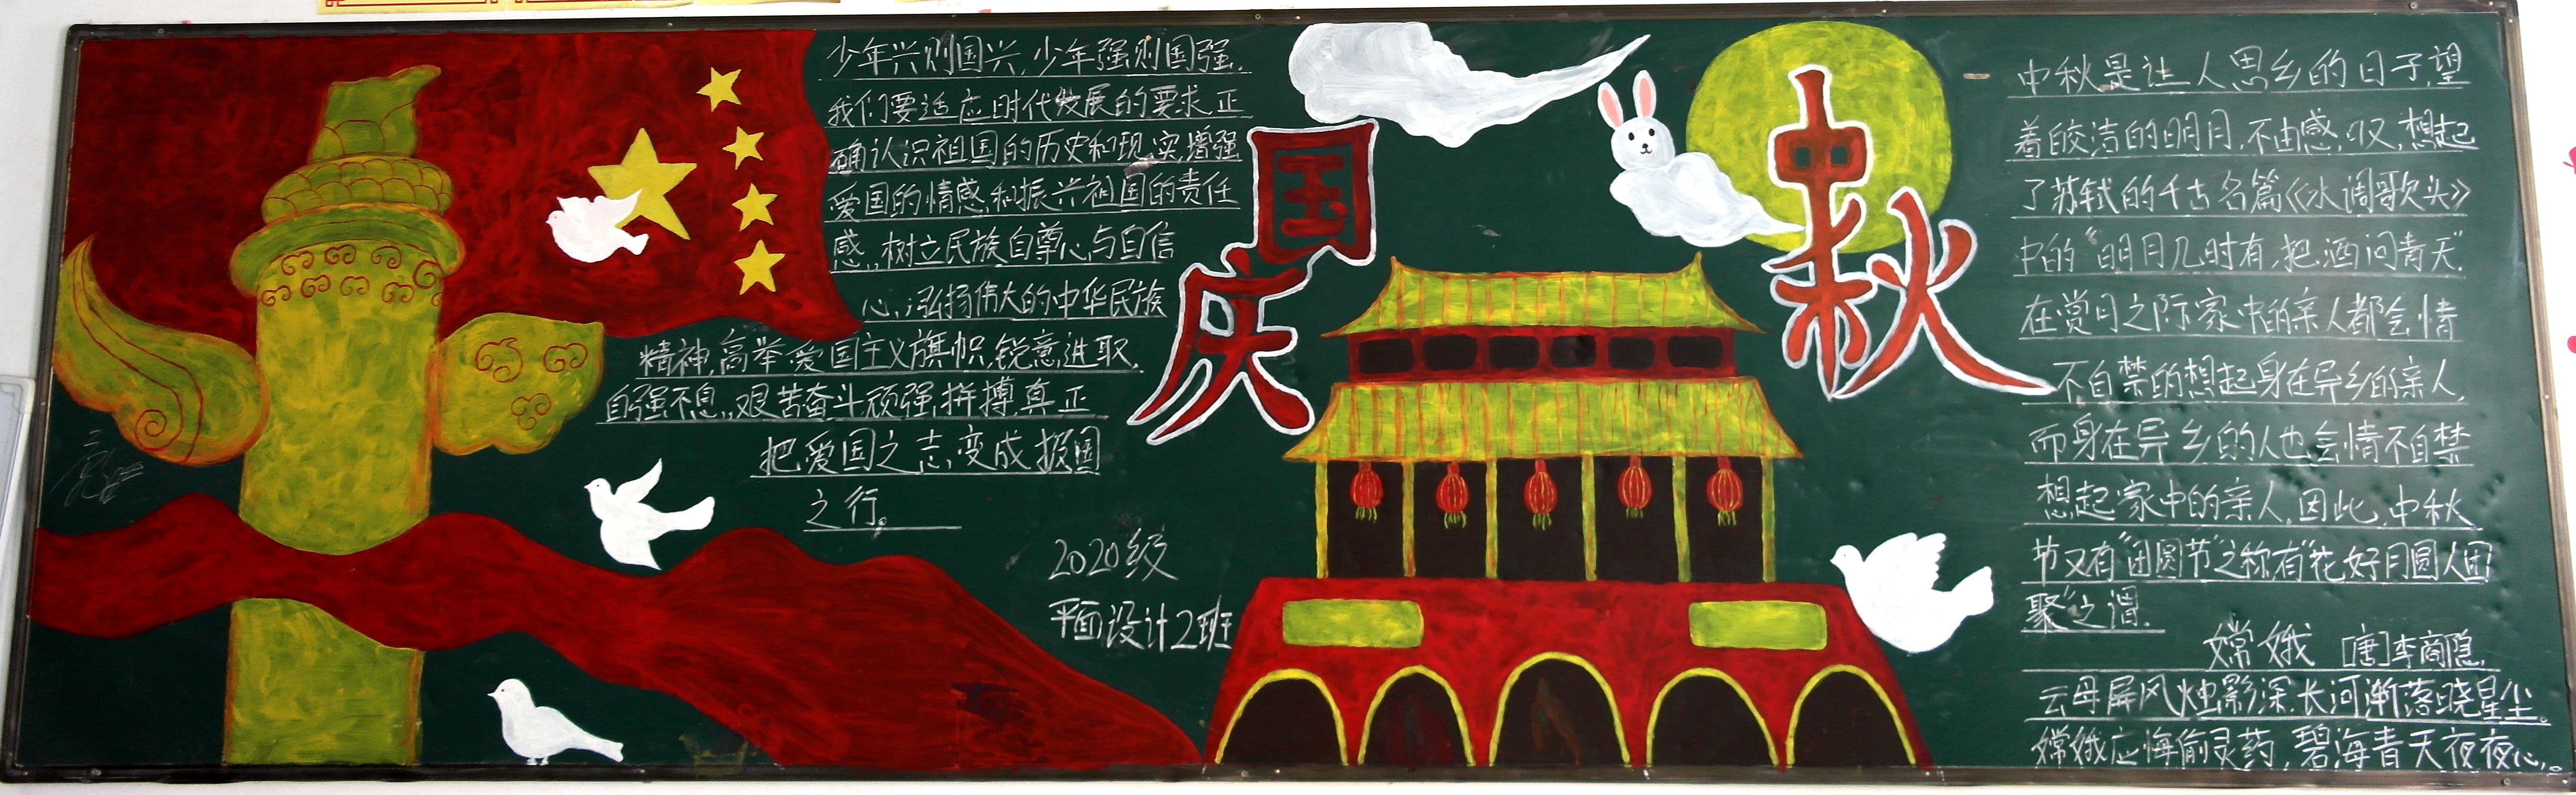 少年兴则国兴,少年强则国强.
我们要适应时代发展的要求,正
确认识祖国的历史和现实,增强
爱国的情感和振兴祖国的责任
感,树立民族自尊心与自信
心,弘扬伟大的中华民族
精神,高举爱国主义旗帜,锐意进取,
自强不息,艰苦奋斗,顽强拼搏,真正
把爱国之志变成报国
之行。
2020级
平面设计2班
国庆
中秋
中秋是让人思乡的日子,望
着皎洁的明月,不由感叹,想起
了苏轼的千古名篇《水调歌头》
中的“明月几时有,把酒问青天”.
在赏月之际,家中的亲人都会情
不自禁的想起身在异乡的亲人,
而身在异乡的人也会情不自禁
想起家中的亲人.因此,中秋
节又有“团圆节”之称,有“花好月圆人团
聚”之谓.
嫦娥 [唐]李商隐
云母屏风烛影深,长河渐落晓星尘。
嫦娥应悔偷灵药,碧海青天夜夜心。